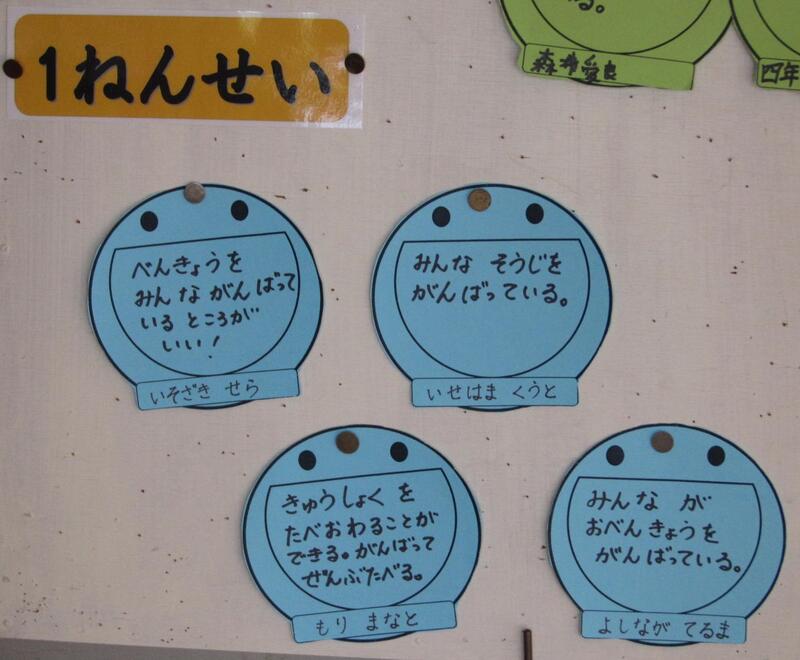 1ねんせい
る。
森井愛良
四年
べんきょうを
みんながんばって
いるところが
いい!
いそざき せら
みんな そうじを
がんばっている。
いせはま くうと
きゅうしょくを
たべおわることが
できる。がんばって
ぜんぶたべる。
もり まなと
みんな が
おべんきょうを
がんばっている。
よしなが てるま